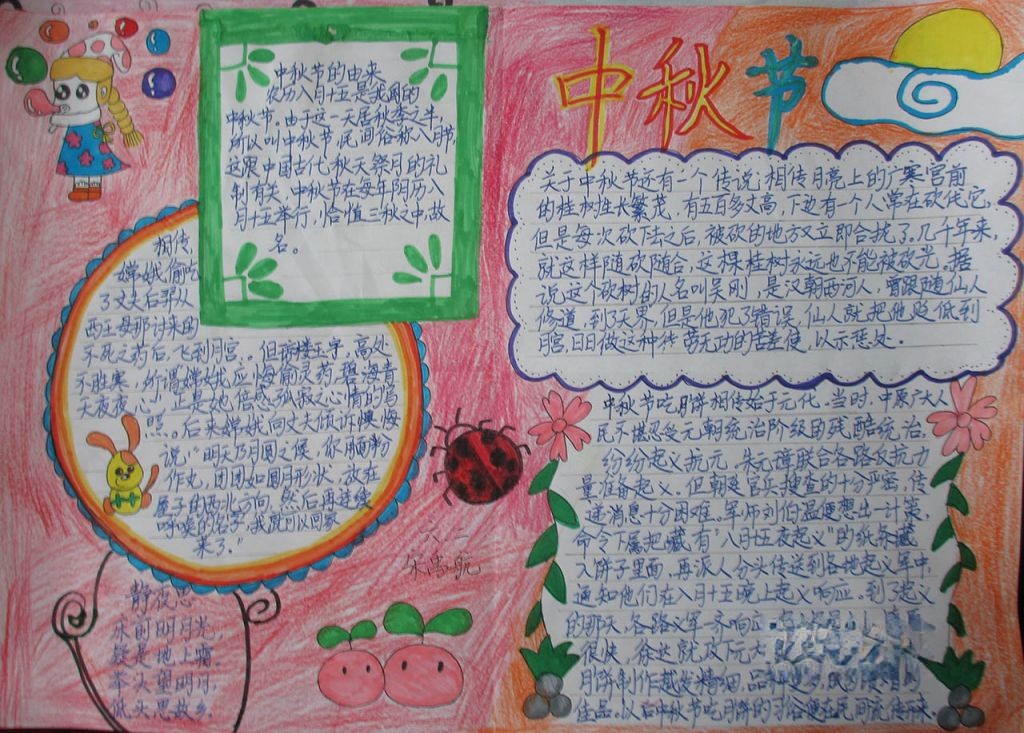 中秋节
中秋节的由来
农历八月十五是我国的
中秋节.由于这一天居秋季之半,
所以叫中秋节,民间俗称八月节,
这跟中国古代秋天祭月的礼
制有关.中秋节在每年阴历八
月十五举行,恰值三秋之中,故
名。
关于中秋节还有一个传说:相传月亮上的广寒宫前
的桂树生长繁茂,有五百多丈高,下边有一个人常在砍伐它,
但是每次砍下去之后,被砍的地方又立即合拢了.几千年来,
就这样随砍随合,这棵桂树永远也不能被砍光。据
说,这个砍树的人名叫吴刚,是汉朝西河人,曾跟随仙人
修道,到了天界,但是他犯了错误,仙人就把他贬低到
月宫,日日做这种徒劳无功的苦差使,以示惩处.
相传,
嫦娥偷吃
了丈夫后羿从
西王母那讨来的
不死之药后,飞到月宫。但琼楼玉宇,高处
不胜寒,所谓嫦娥应悔偷灵药,碧海青
天夜夜心,正是她倍感孤寂之心情的写
照。后来嫦娥向丈夫倾诉懊悔
说:"明天乃月圆之候,你用面粉
作丸,团团如圆月形状,放在
屋子的西北方向,然后再连续
呼唤我的名字,我就可以回家
来了."
中秋节吃月饼相传始于元代.当时,中原广大人
民不堪忍受元朝统治阶级的残酷统治,
纷纷起义抗元.朱元璋联合各路反抗力
量准备起义.但朝廷官兵搜查的十分严密,传
递消息十分困难.军师刘伯温便想出一计策,
命令下属把藏有"八月十五夜起义"的纸条藏
入饼子里面,再派人分头传送到各地起义军中,
通知他们在八月十五晚上起义响应.到了起义
的那天,各路义军一齐响应,
很快,徐达就攻下元大
月饼制作越发精细,品种更多,
佳品.以后中秋节吃月饼的习俗便在民间流传开来.
六.二
静夜思
床前明月光,
疑是地上霜.
举头望明月,
低头思故乡.